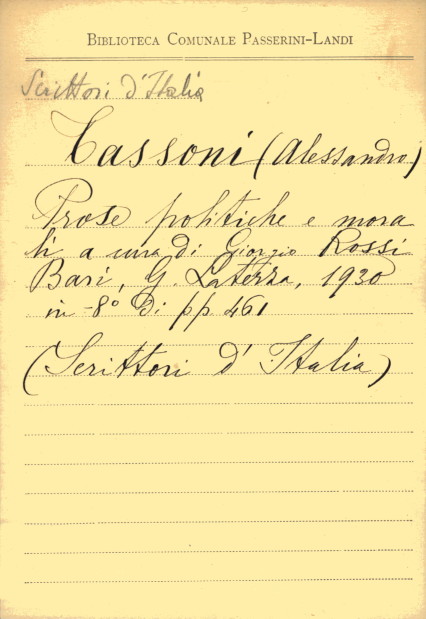 BIBLIOTECA COMUNALE PASSERINI-LANDI
Scrittori d'Italia
Tassoni (Alessandro)
Prose politiche e mora
li a cura di Giorgio Rossi
Bari, G. Laterza, 1930
in-8° di pp. 461
(Scrittori d'Italia)